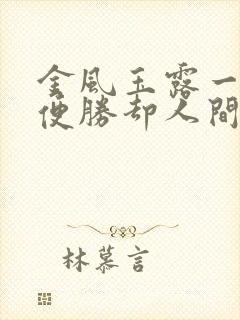 金風玉露一
便勝却人間
林慕言